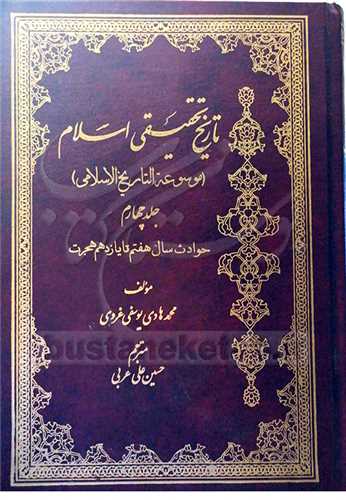 تاریخ تحقیقی اسلام
(موسوعة التاریخ الاسلامی)
جلد چهارم
حوادث سال هفتم تا یازدهم هجرت
مؤلف
محمد هادی یوسفی غروی
مترجم
حسین علی عربی
bustaneketab